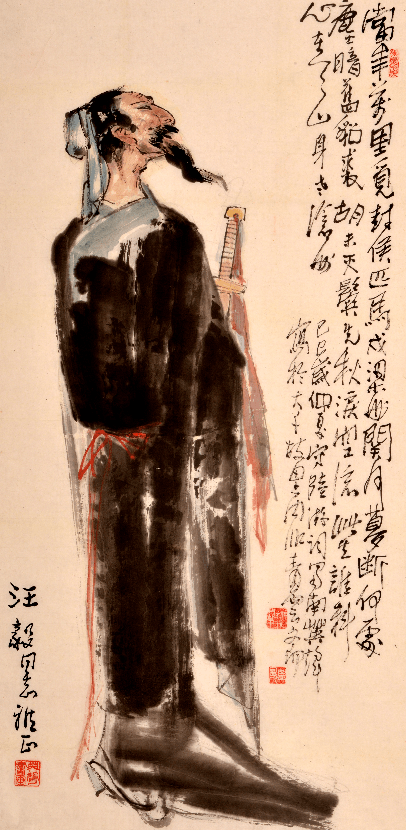 當年萬里覓封侯匹馬戍梁州關河夢斷何處
塵暗舊貂裘胡未灭鬢先秋淚空流此生誰料
心在天山身老滄州
己巳歲仲夏寫陸游詞
寫於大千故里
汪毅同志雅正